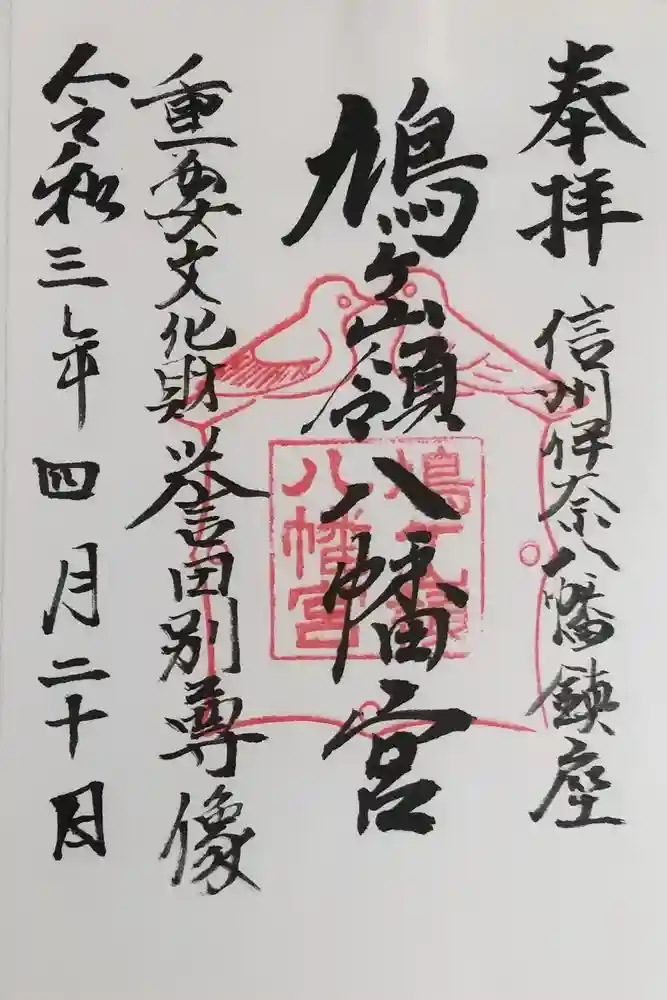 奉拝
信州伊奈八幡鎮座
鳩ヶ嶺八幡宮
鳩ヶ嶺
八幡宮
重要文化財 誉田別尊像
令和三年四月二十日